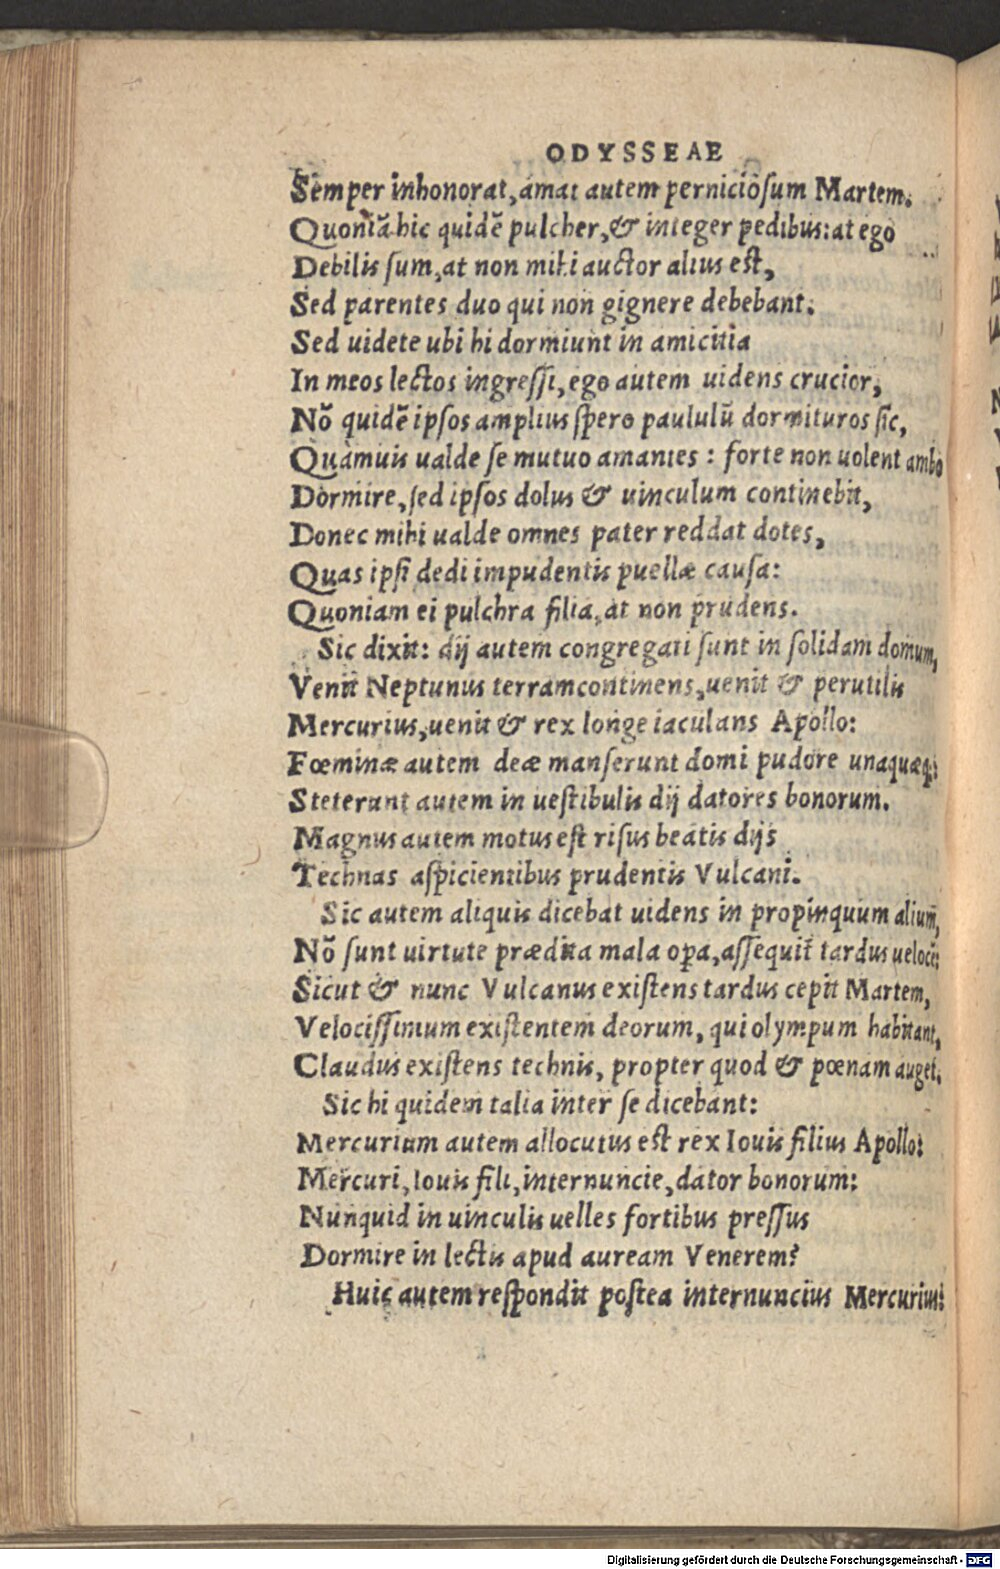 ODYSSEAE
Semper inhonorat, amat autem perniciosum Martem.
Quoniã hic quidẽ pulcher, & integer pedibus: at ego
Debilis sum, at non mihi auctor alius est,
Sed parentes duo qui non gignere debebant.
Sed uidete ubi hi dormiunt in amicitia
In meos lectos ingressi, ego autem uidens crucior,
Nõ quidẽ ipsos amplius spero paululũ dormituros sic,
Quamuis ualde se mutuo amantes : forte non uolent ambo
Dormire, sed ipsos dolus & uinculum continebit,
Donec mihi ualde omnes pater reddat dotes,
Quas ipsi dedi impudentis puellæ causa:
Quoniam ei pulchra filia, at non prudens.
Sic dixit: dij autem congregati sunt in solidam domum,
Venit Neptunus terram continens, uenit & perutilis
Mercurius, uenit & rex longe iaculans Apollo:
Fœminæ autem deæ manserunt domi pudore unaquæq;:
Steterunt autem in uestibulis dij datores bonorum.
Magnus autem motus est risus beatis dijs
Technas aspicientibus prudentis Vulcani.
Sic autem aliquis dicebat uidens in propinquum alium,
Nõ sunt uirtute prædita mala opa, assequit̃ tardus uelocẽ:
Sicut & nunc Vulcanus existens tardus cepit Martem,
Velocissimum existentem deorum, qui olympum habitant,
Claudus existens technis, propter quod & pœnam auget.
Sic hi quidem talia inter se dicebant:
Mercurium autem allocutus est rex Iouis filius Apollo:
Mercuri, Iouis fili, internuncie, dator bonorum:
Nunquid in uinculis uelles fortibus pressus
Dormire in lectis apud auream Venerem?
Huic autem respondit postea internuncius Mercurius:
Digitalisierung gefördert durch die Deutsche Forschungsgemeinschaft - DFG